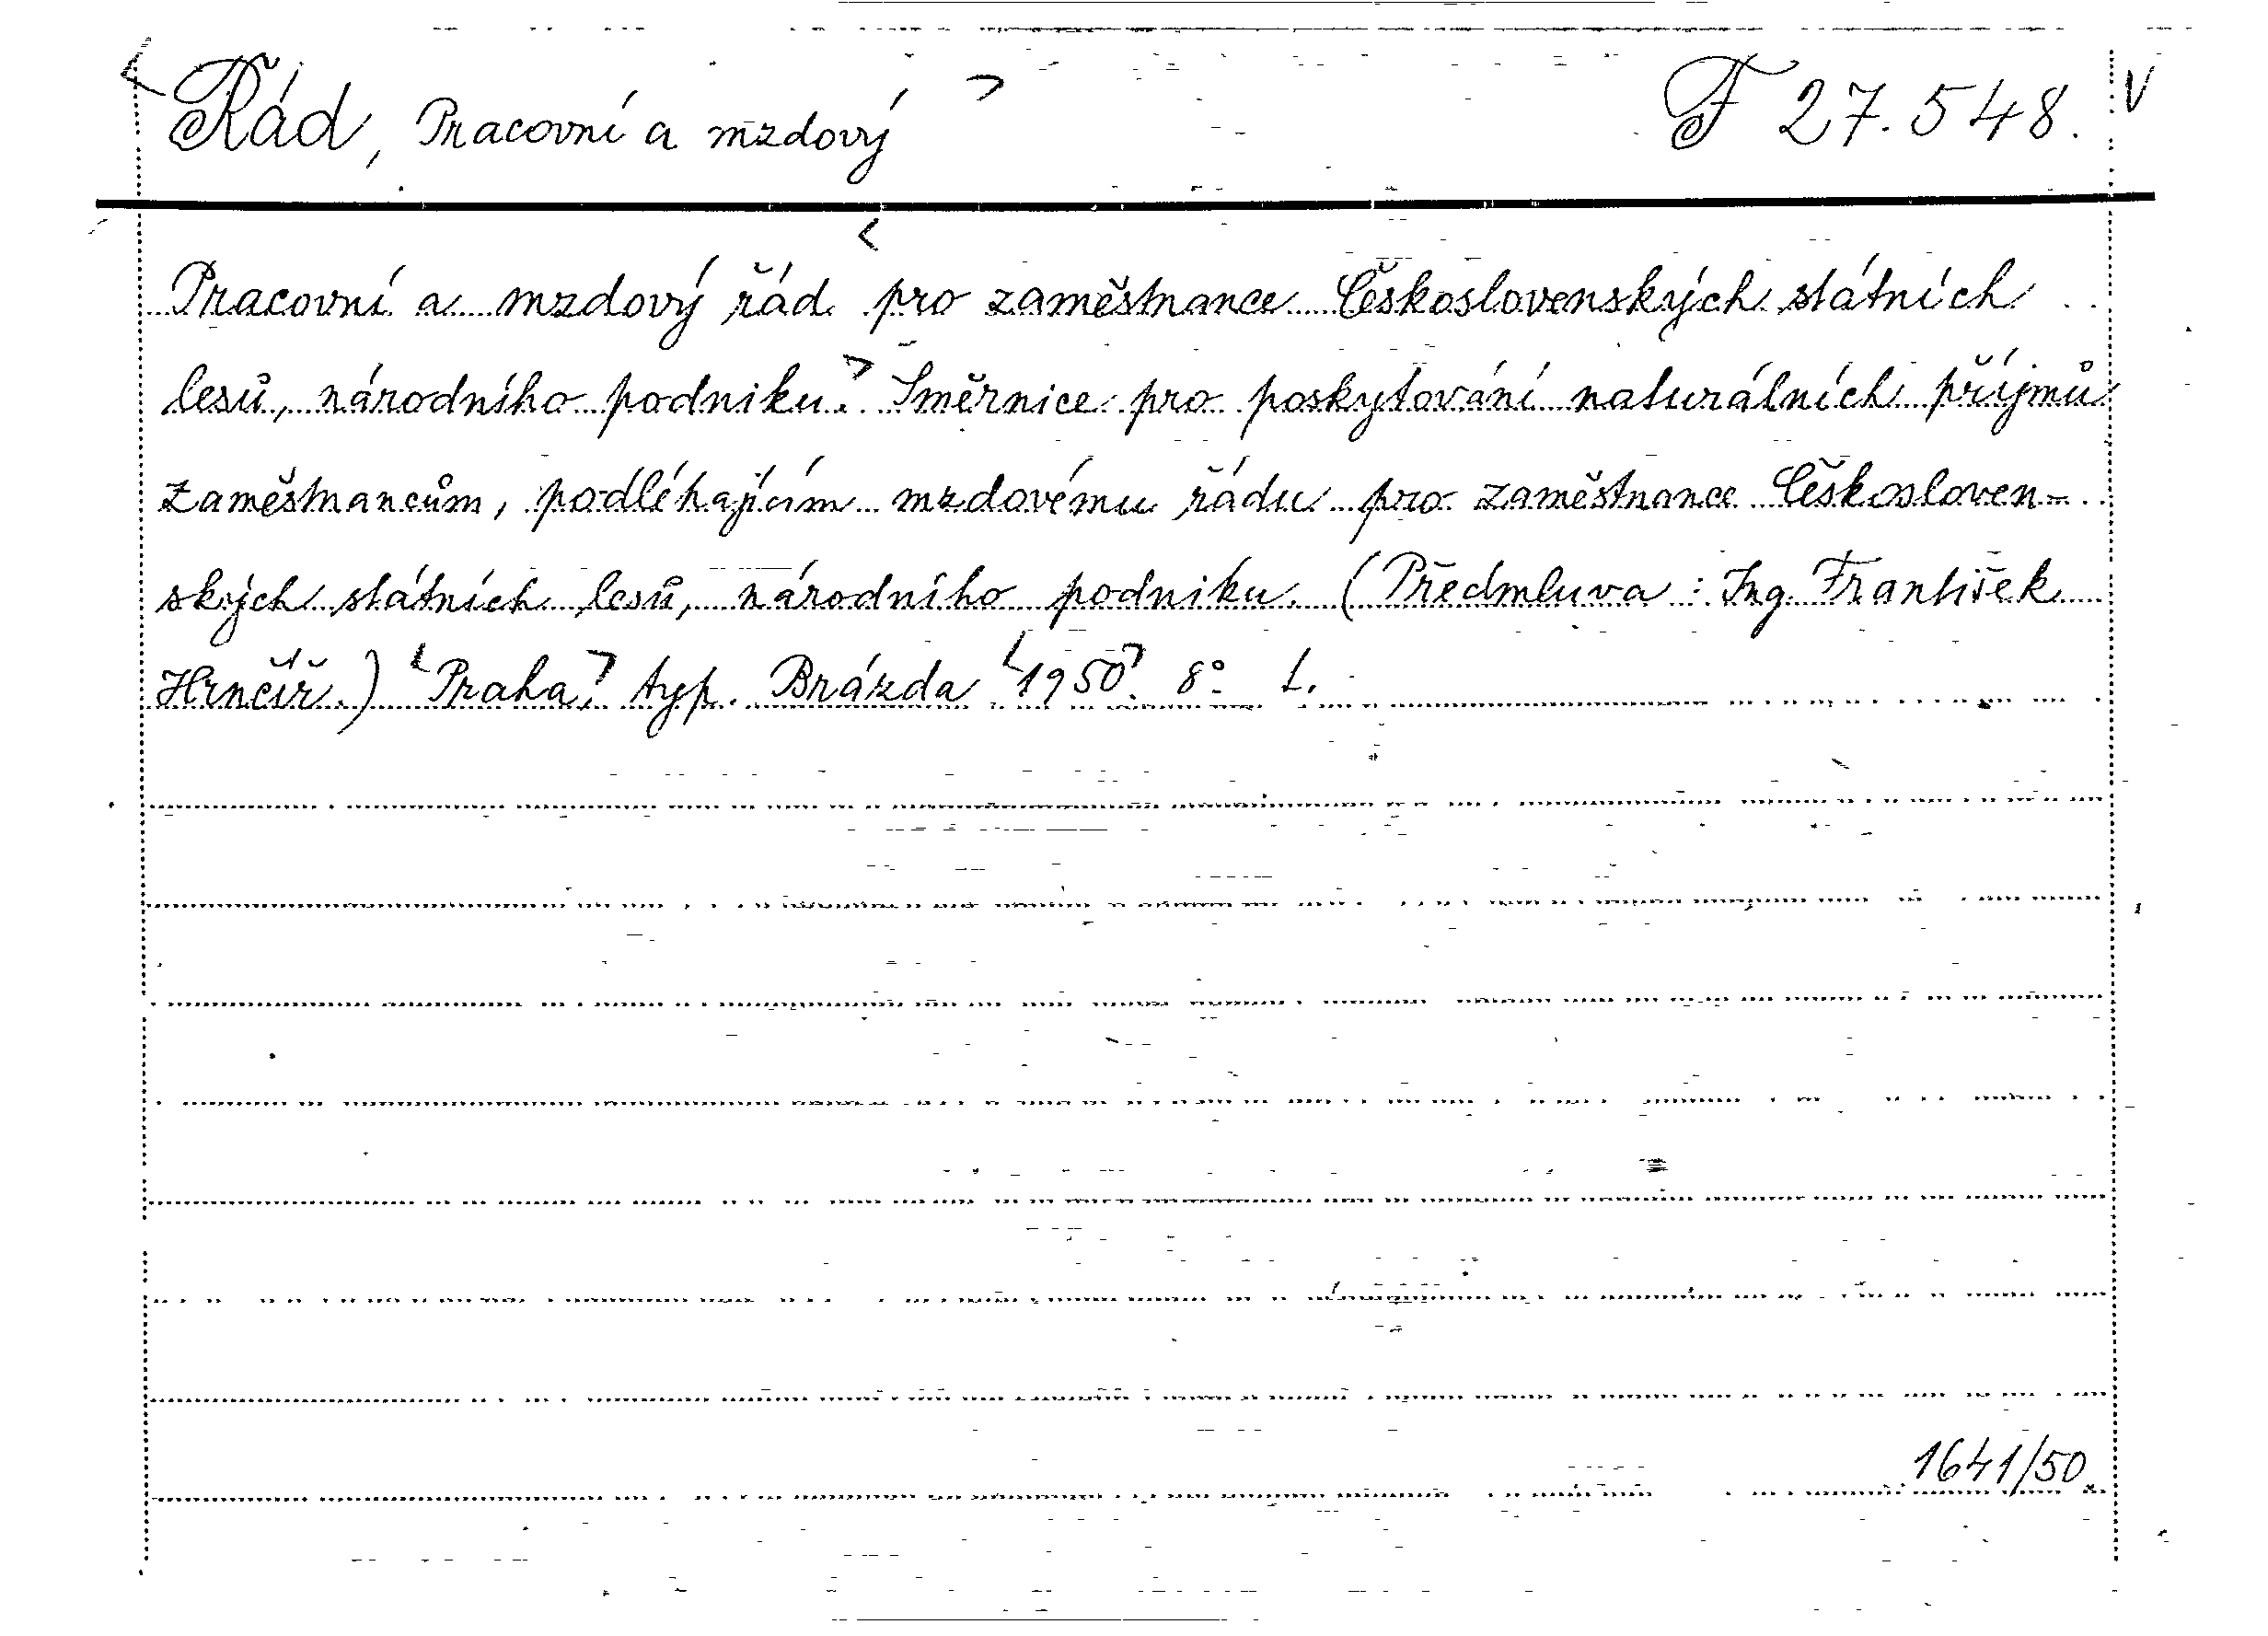 <Řád, Pracovní a mzdový> F 27.548. V
<Pracovní a mzdový řád pro zaměstnance Československých státních
lesů, národního podniku.> Směrnice pro poskytování naturálních příjmů
zaměstnancům, podléhajícím mzdovému řádu pro zaměstnance Českosloven-
ských státních lesů, národního podniku. (Předmluva: Ing. František
Hrnčíř.) <Praha,> typ. Brázda <1950>. 8° L.
1641/50.